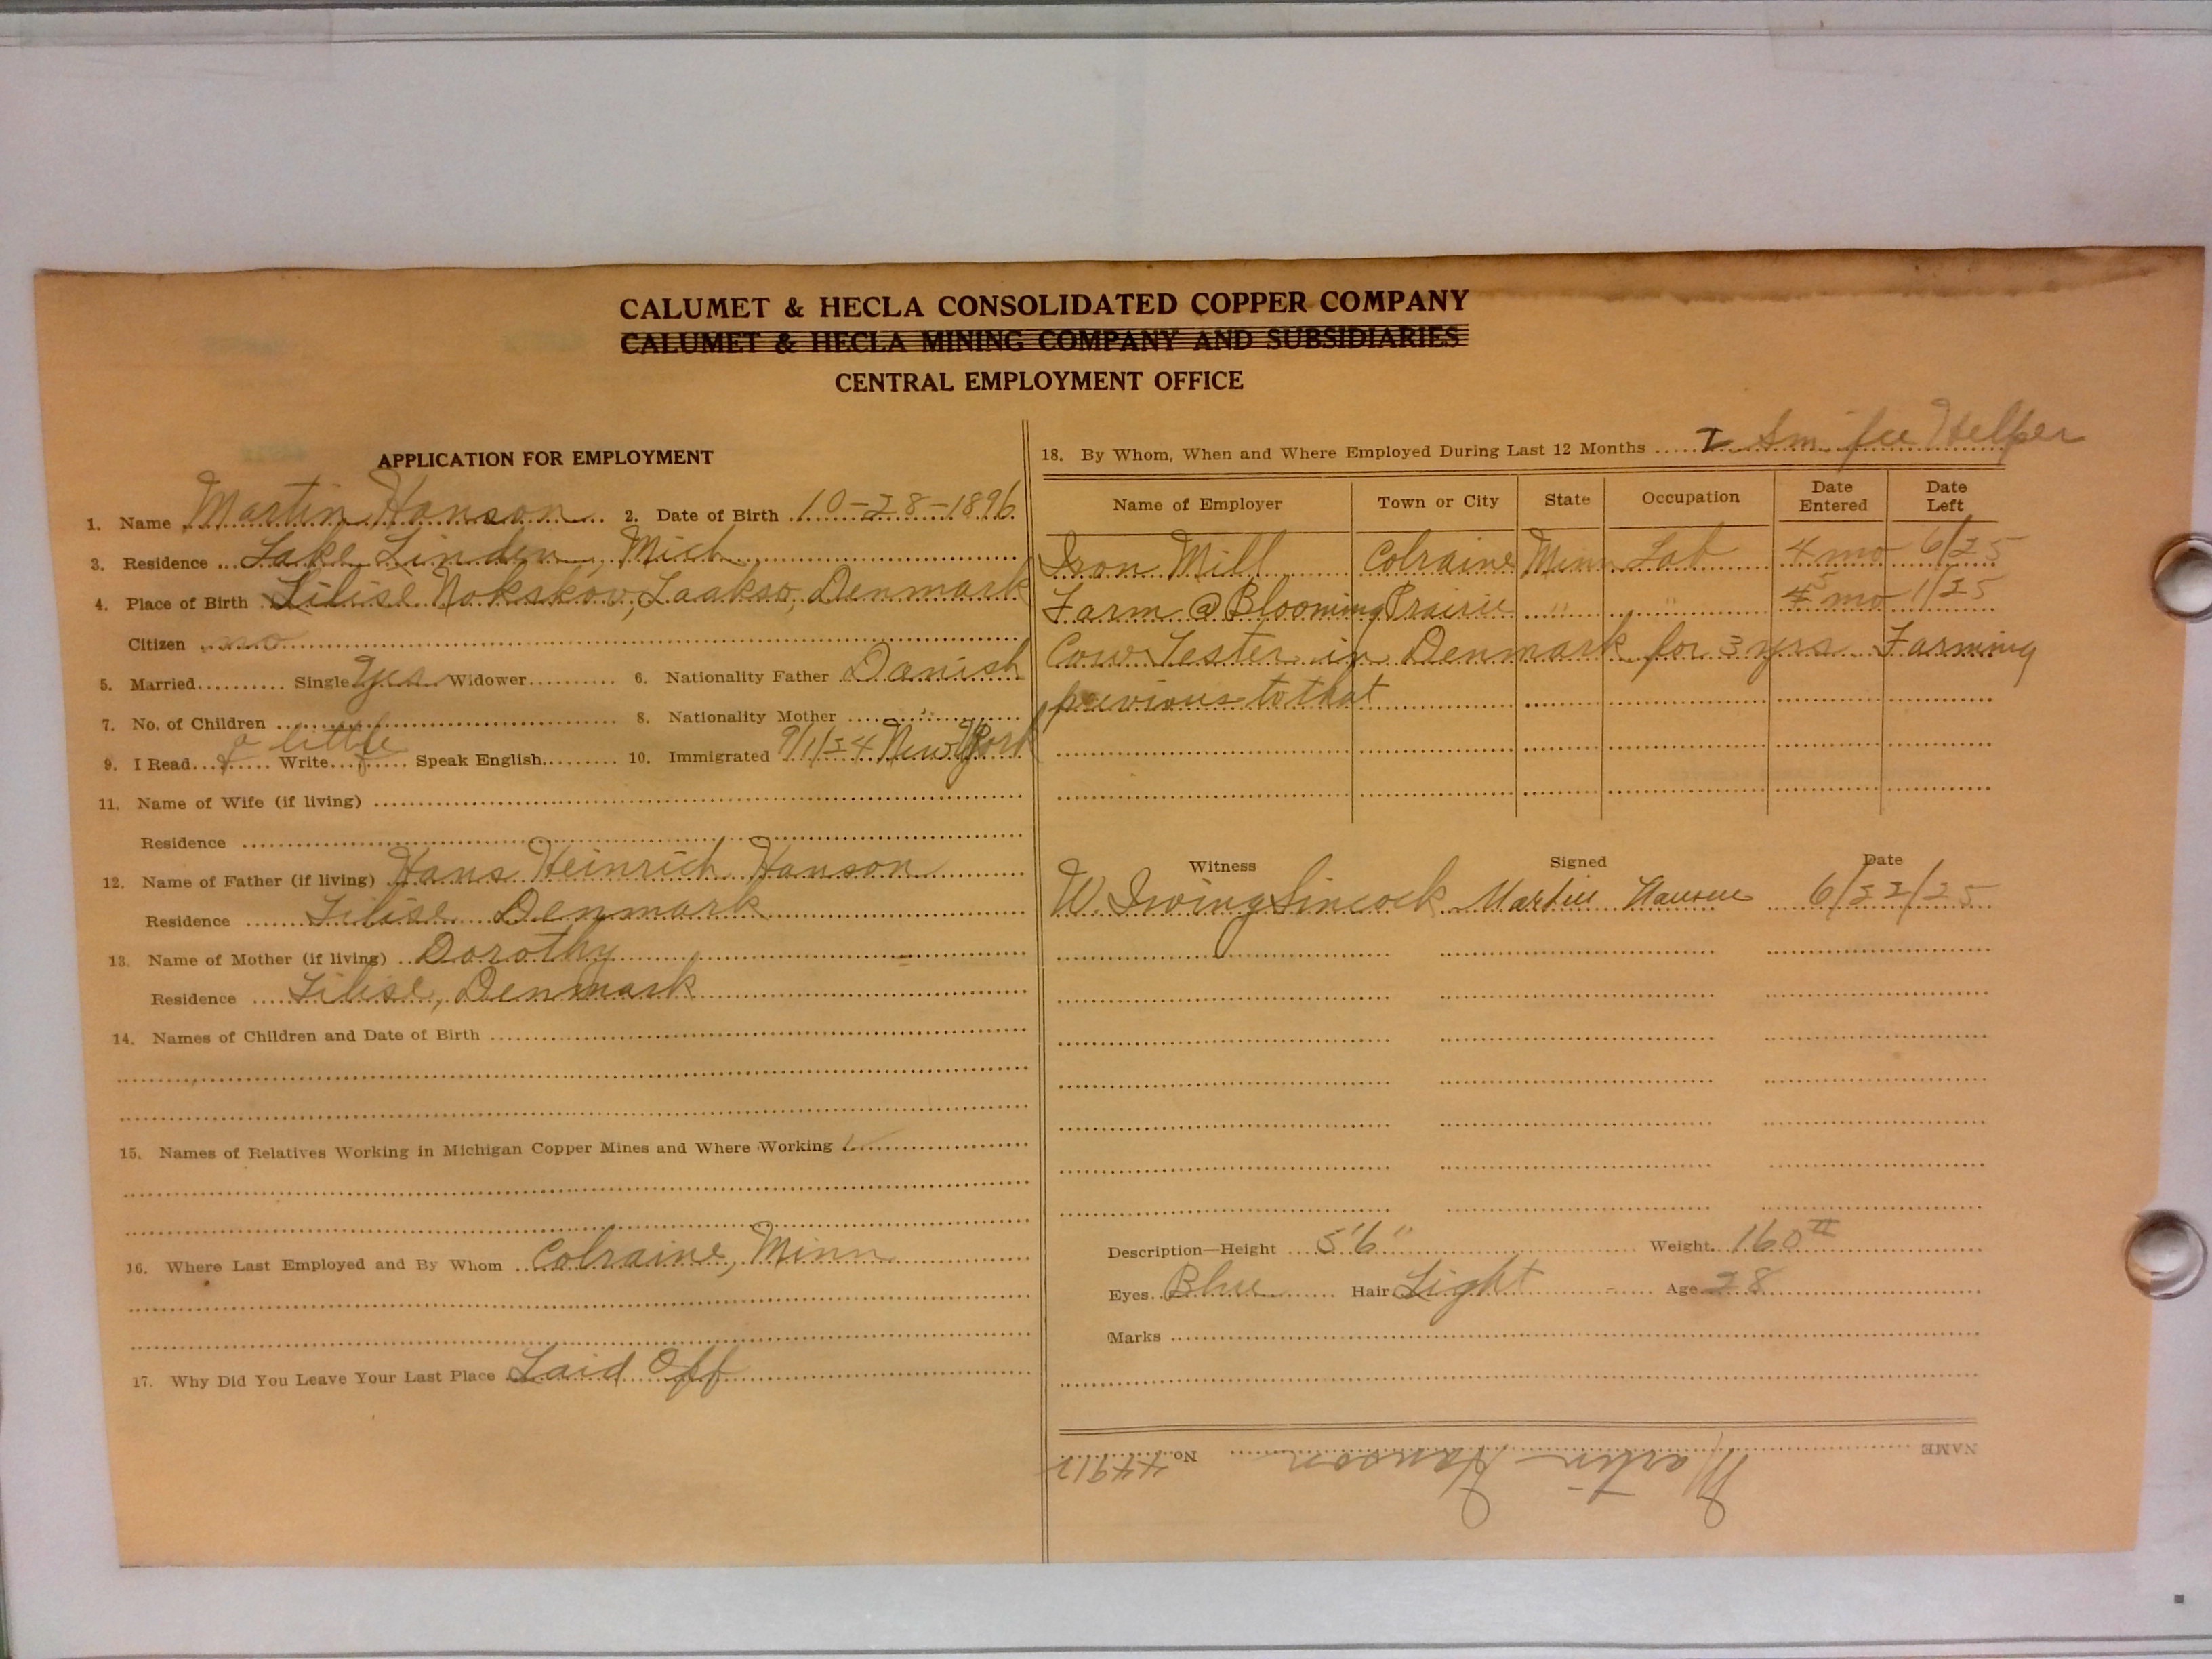 CALUMET & HECLA CONSOLIDATED COPPER COMPANY
CALUMET & HECLA MINING COMPANY AND SUBSIDIARIES
CENTRAL EMPLOYMENT OFFICE
APPLICATION FOR EMPLOYMENT
1. Name Martin Hanson 2. Date of Birth 10-28-1896
3. Residence Lake Linden Mich
4. Place of Birth Lilise Nokskov, Laakso, Denmark
Citizen no
5. Married Single Yes Widower 6. Nationality Father Danish
7. No. of Children 8. Nationality Mother "
a little
9. I Read Write Speak English 10. Immigrated 9/1/24 New York
11. Name of Wife (if living)
Residence
12. Name of Father (if living) Hans Heinrich Hanson
Residence Lilise Denmark
13. Name of Mother (if living) Dorothy
Residence Lilise, Denmark
14. Names of Children and Date of Birth
15. Names of Relatives Working in Michigan Copper Mines and Where Working
16. Where Last Employed and By Whom Colraine, Minn
17. Why Did You Leave Your Last Place Laid Off
18. By Whom, When and Where Employed During Last 12 Months Helper
Name of Employer Town or City State Occupation Date Entered Date Left
Iron Mill Colraine Minn Lab 4 mo 6/25
Farm @ Blooming Prairie " " 5 mo 1/25
Cow Tester in Denmark for 3 yrs Farming
previous to that
Witness Signed Date
W. Irving Sincock Martin Hansen 6/22/25
Description—Height 5'6" Weight 160#
Eyes Blue Hair Light Age 28
Marks
NAME Martin Hanson No. 44912